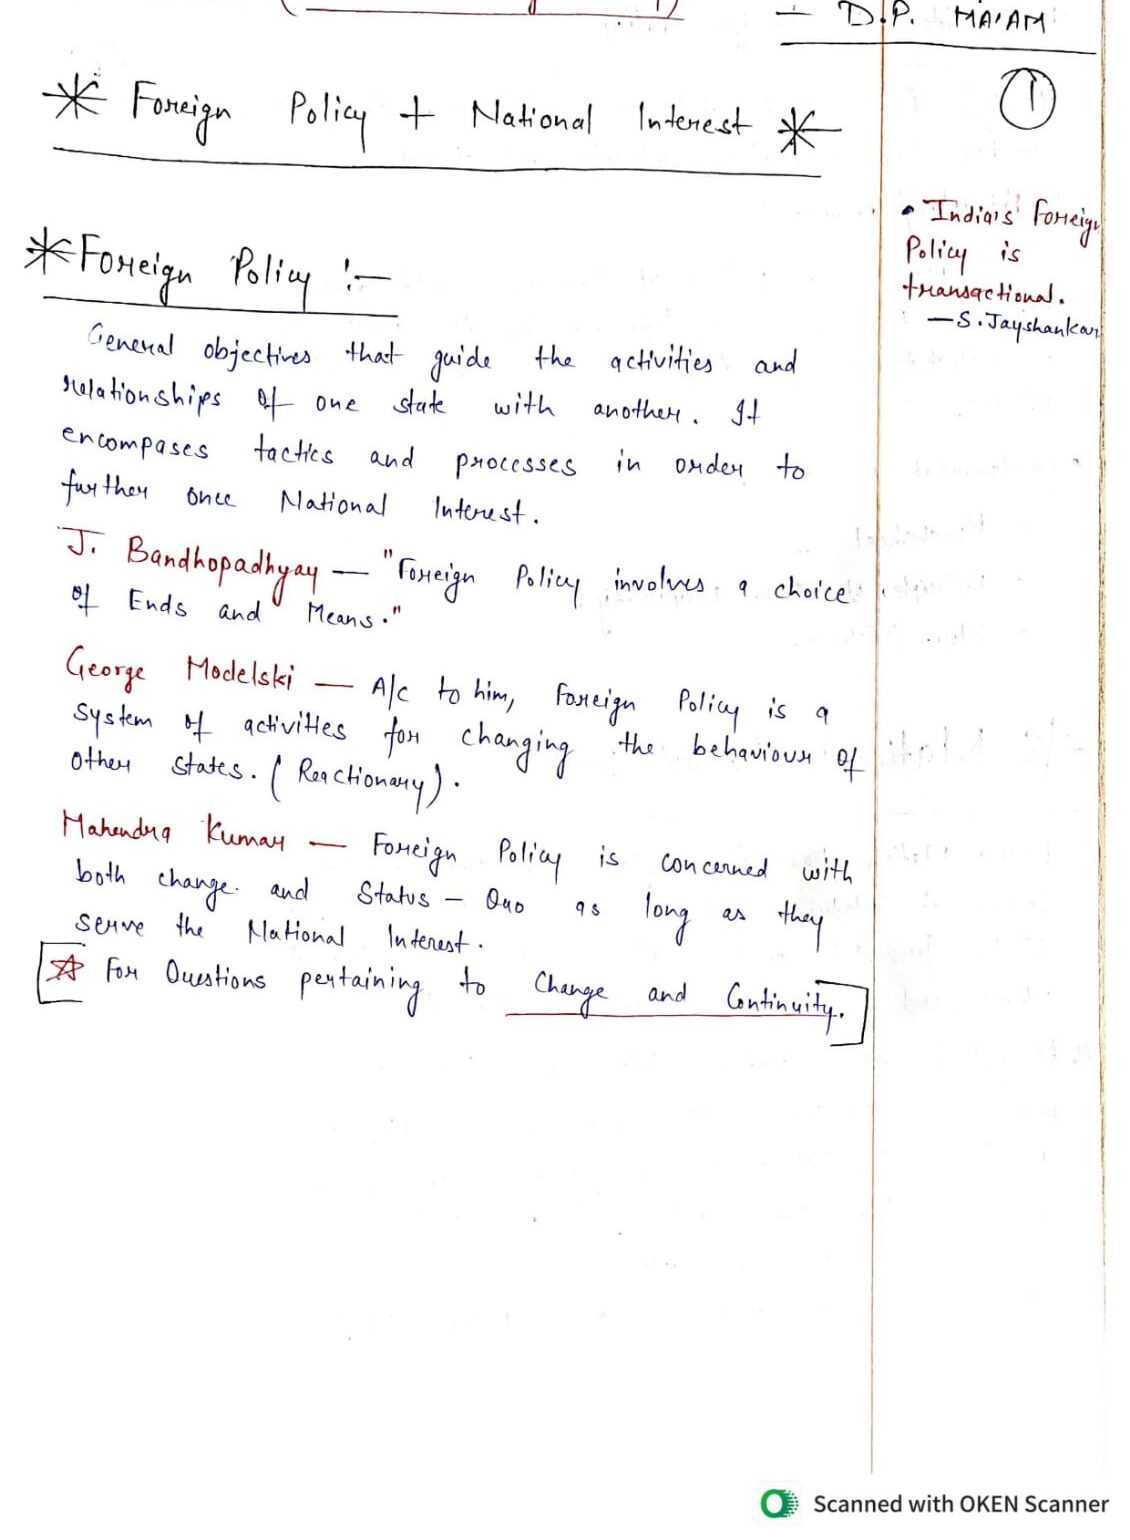 — D.P. MA'AM
1
* Foreign Policy + National Interest *
• India's Foreign
Policy is
transactional.
— S. Jayshankar
* Foreign Policy :—
General objectives that guide the activities and
relationships of one state with another. It
encompases tactics and processes in order to
further once National Interest.
J. Bandhopadhyay — "Foreign Policy involves a choice
of Ends and Means."
George Modelski — A/c to him, Foreign Policy is a
system of activities for changing the behaviour of
other states. (Reactionary).
Mahendra Kumar — Foreign Policy is concerned with
both change and Status - Quo as long as they
serve the National Interest.
For Questions pertaining to Change and Continuity.
Scanned with OKEN Scanner